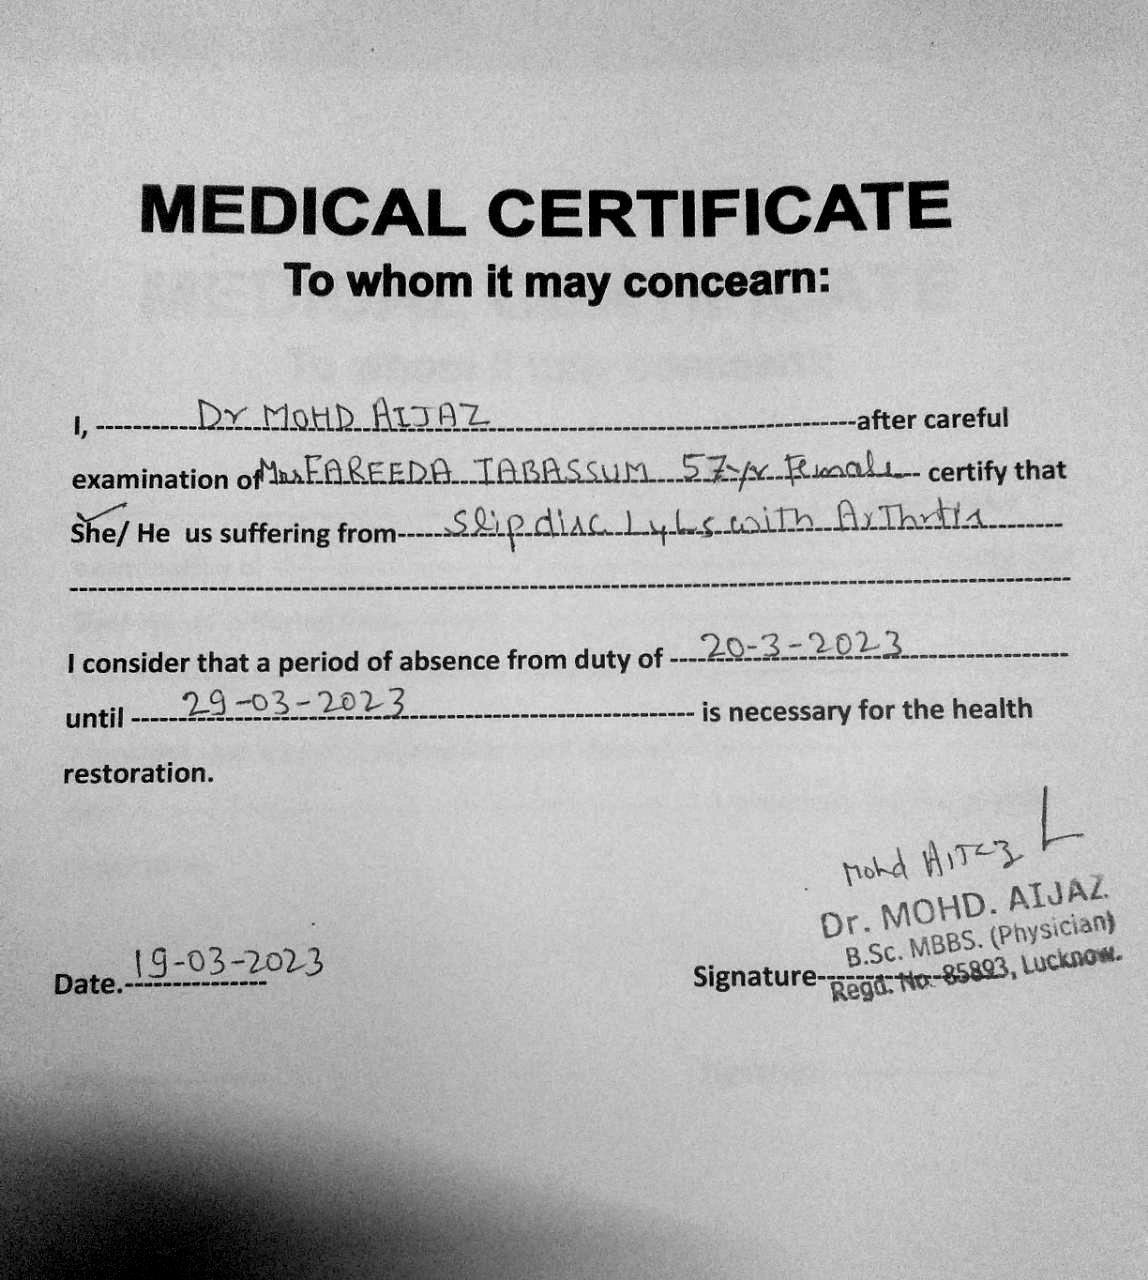 MEDICAL CERTIFICATE
To whom it may concearn:
I, Dr MOHD AIJAZ after careful
examination of Mrs FAREEDA TABASSUM 57 yr Female certify that
She/ He us suffering from Slip disc L4 L5 with Arthrtis
I consider that a period of absence from duty of 20-3-2023
until 29-03-2023 is necessary for the health
restoration.
Mohd
Dr. MOHD. AIJAZ
B.Sc. MBBS. (Physician)
Regd. No. 85893, Lucknow.
Date. 19-03-2023
Signature